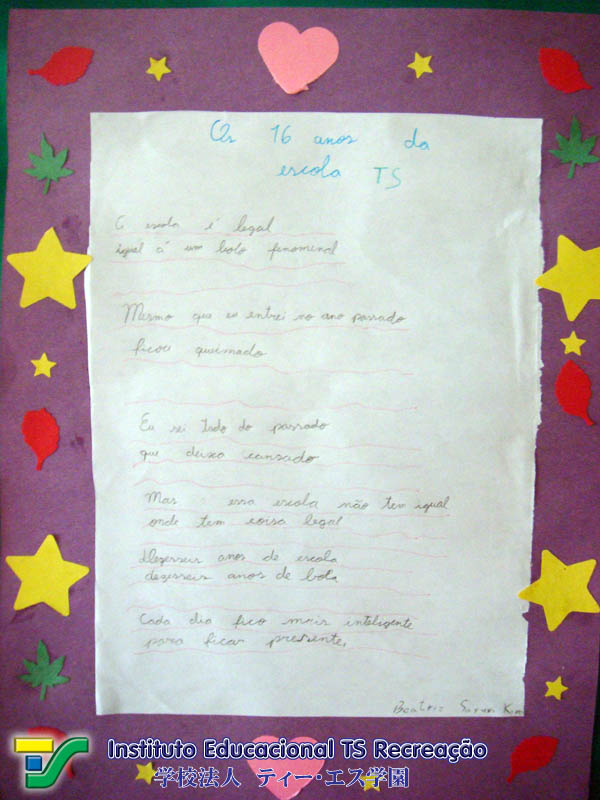 Os 16 anos da
escola TS
A escola é legal
igual á um bolo fenomenal
Mesmo que eu entrei no ano passado
ficou queimado
Eu sei tudo do passado
que deixa cansado
Mas essa escola não tem igual
onde tem coisa legal
Dezesseis anos de escola
dezesseis anos de bola
Cada dia fico mais inteligente
para ficar presente.
Beatriz
TS
Instituto Educacional TS Recreação
学校法人 ティー・エス学園